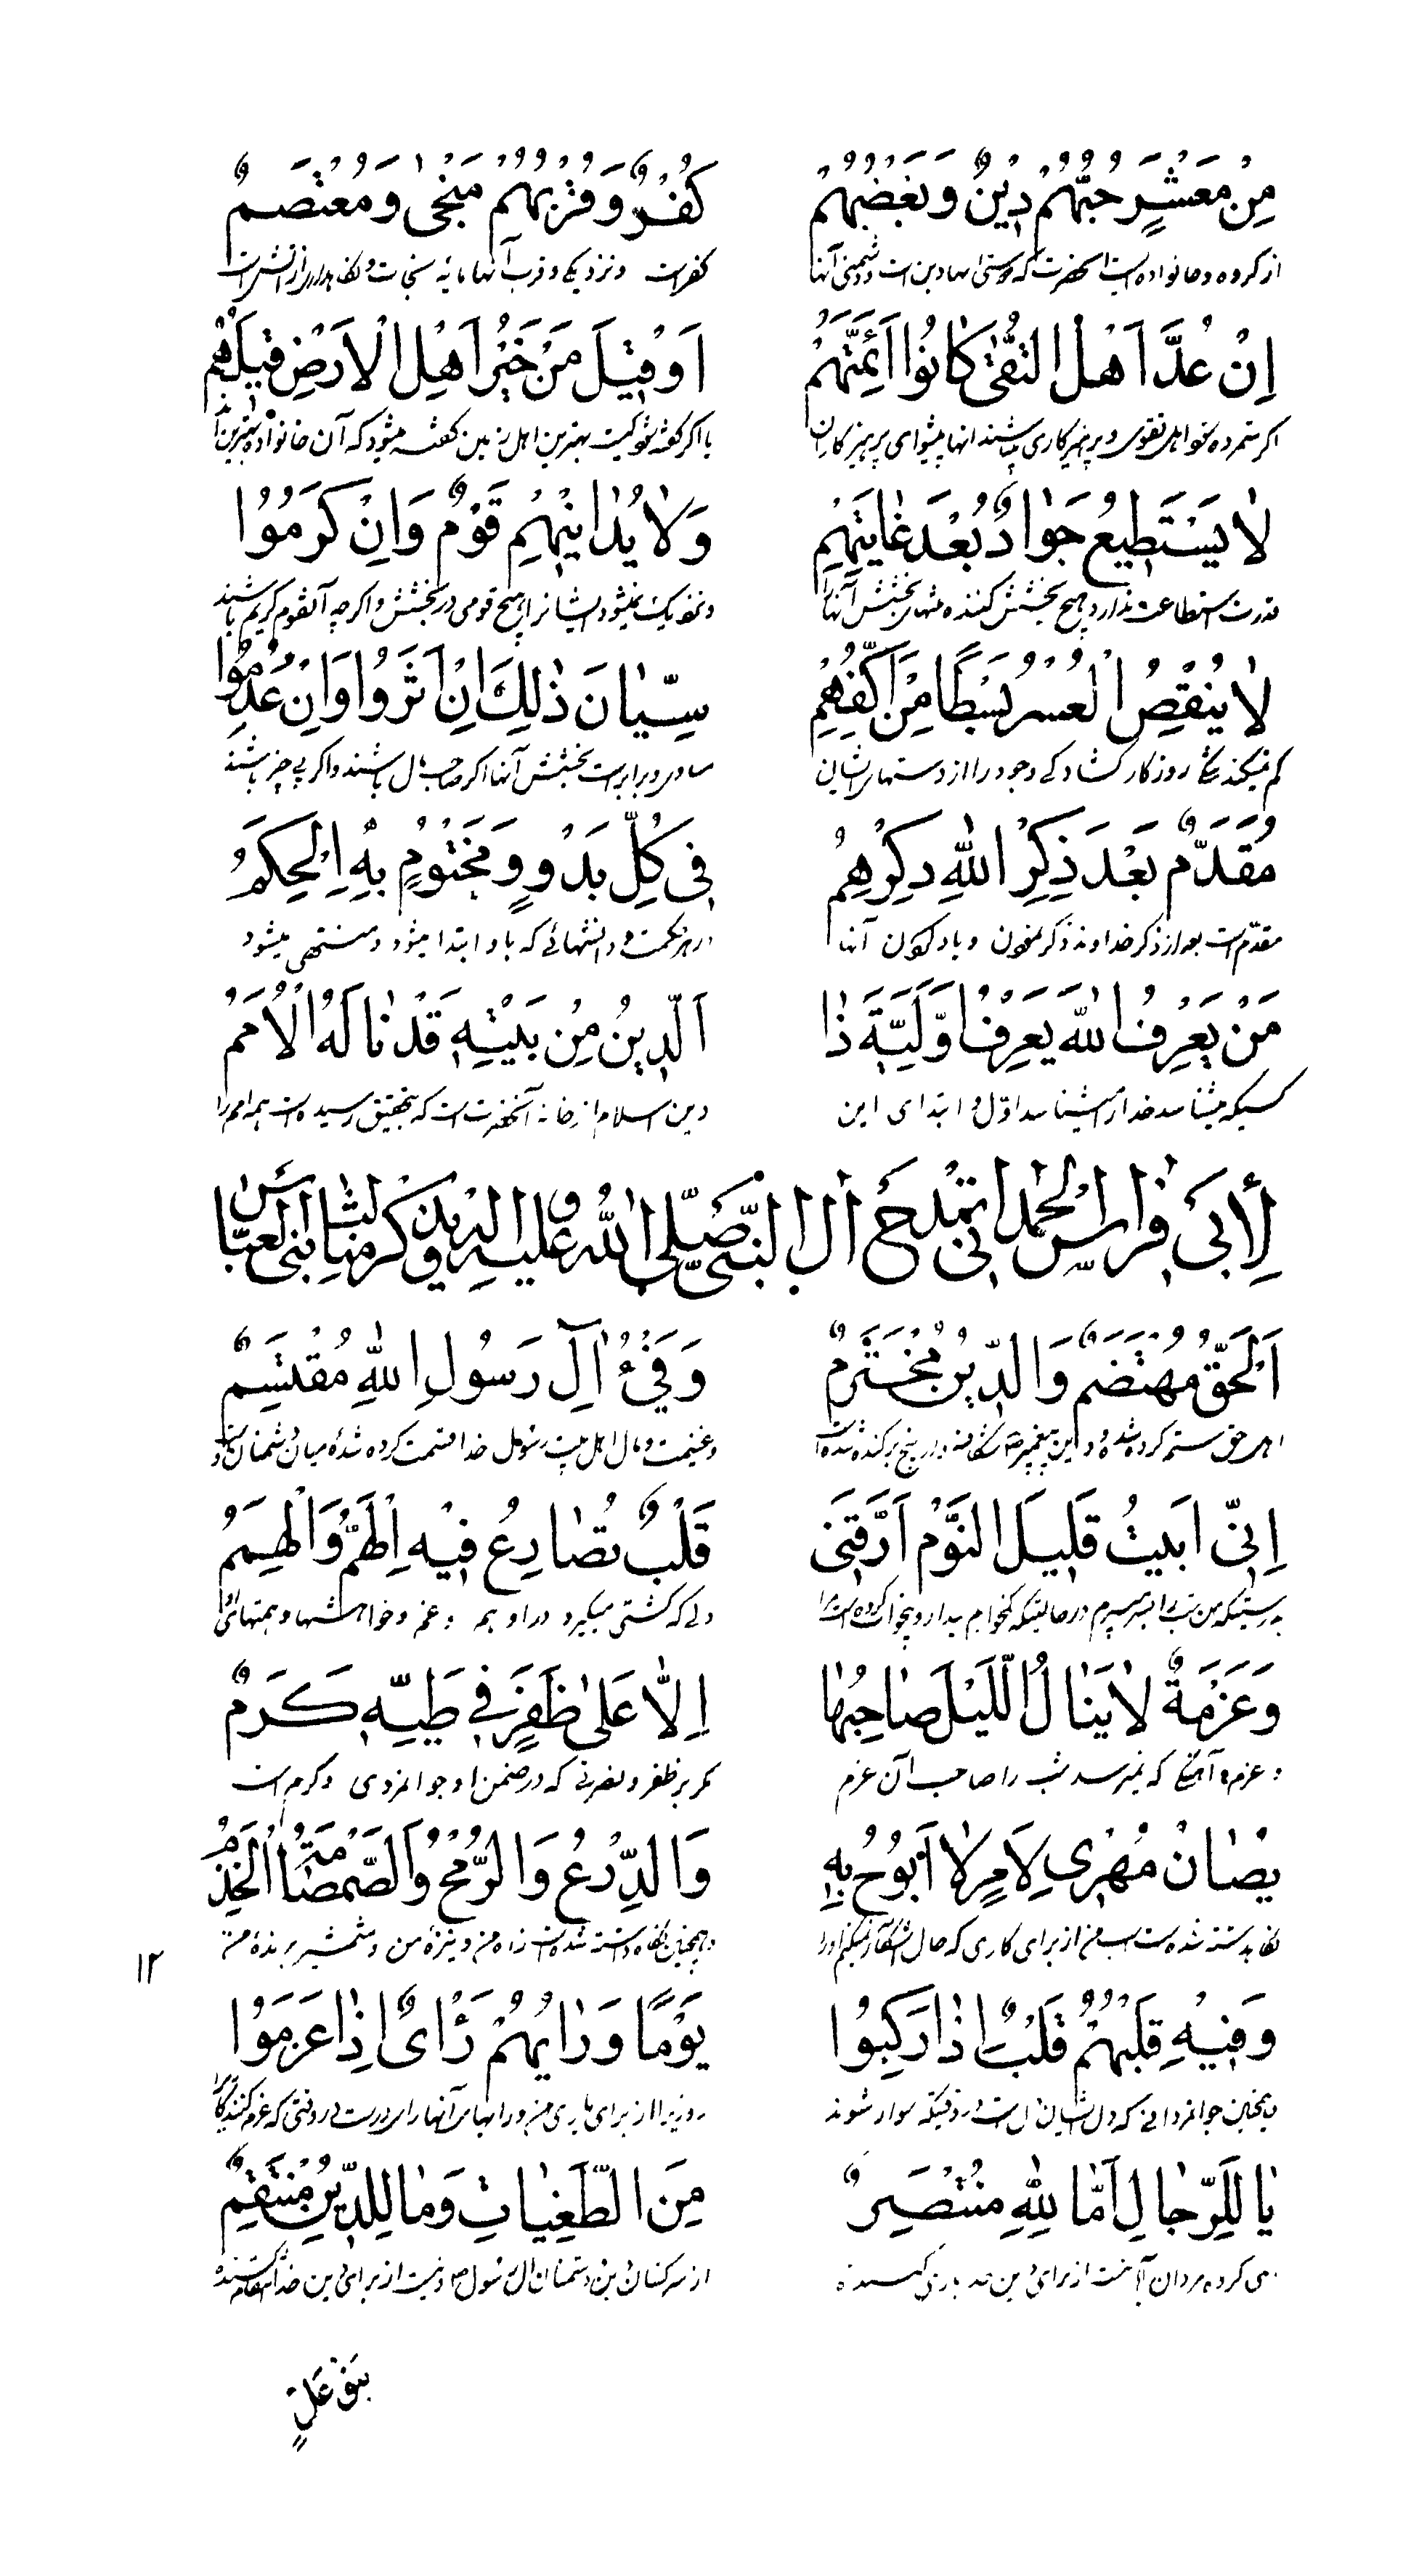 مِنْ مَعْشَرٍ حُبُّهُمْ دِيْنٌ وَبُغْضُهُمْ كُفْرٌ وَقُرْبُهُمْ مَنْجىٰ وَمُعْتَصَمٌ
از گروه و خانواده است آنحضرت که دوستی آنها دین است و دشمنی آنها کفر است و نزدیکی و قرب آنها مایه نجات و نگاهدار از آتش است
اِنْ عُدَّ اَهْلُ التُّقىٰ كٰانُوا اَئِمَّتَهُمْ اَوْ قِيْلَ مَنْ خَيْرُ اَهْلِ الْاَرْضِ قِيْلَ هُمْ
اگر شمرده شوند اهل تقوی و پرهیزکاری میباشند آنها پیشوای پرهیزکاران یا اگر گفته شود کیست بهترین اهل زمین گفته میشود که آن خانواده بهترین
لٰا يَسْتَطِيعُ جَوٰادٌ بُعْدَ غٰايَتِهِمْ وَلٰا يُدٰانِيْهِمِ قَوْمٌ وَاِنْ كَرَمُوُا
قدرت و استطاعت ندارد هیچ بخشش کننده منتهای بخشش آنها را و نزدیک نمیشود ایشانرا هیچ قومی در بخشش و اگر چه آنقوم کریم باشند
لٰا يُنْقِصُ الْعُسْرُ بَسْطًا مِنْ اَكُفِّهِمْ سِيّٰانَ ذٰلِكَ اِنْ اَثَرُوا وَاِنْ عَدِمُوا
کم نمیکند روزگار گشادگی وجود را از دستهای ایشان مساوی و برابر است بخشش آنها اگر صاحب مال باشند و اگر بی چیز باشند
مُقَدَّمٌ بَعْدَ ذِكِرْ اللّٰهِ ذِكِرْهِمُ فِى كُلِّ بَدْوٍ وَمَخْتُوْمٍ بِهِ الْحِكَمُ
مقدّم است بعد از ذکر خداوند ذکر نمودن و یاد کردن آنها در هر حکمت و دانشهائی که باو ابتدا میشود و منتهی میشود
مَنْ يَعْرِفُ اللّٰهَ يَعْرِفْ اَوَّلِيَّةَ ذٰا اَلّدِينُ مِنْ بَيْتِهِ قَدْ نٰالَهُ الْاُمَمُ
کسیکه میشناسد خدا را میشناسد اوّل و ابتدای این دین اسلام از خانه آنحضرت است که بتحقیق رسیده است همه امم را
لِأَبى فِرٰاسِ الْحَمْدٰانِى يَمْدَحُ آلَ النَّبِىّ صَلَّى اللّٰهُ عَلَيهِ وَ الدِّينَ وَ ذَكَرَ مِنْهٰا بَنِى الْعَبّٰاسِ
اَلْحَقُّ مُهْتَضَمٌ وَالدّيْنُ مُخْتَرَمٌ وَفَىْءُ اٰلِ رَسُولِ اللّٰهِ مُقْتَسِمٌ
اهل حق ستم کرده شده و دین پیغمبر شکافته و از بیخ برکنده شده است و غنیمت و مال اهل بیت رسول خدا قسمت کرده شده میان دشمنان
اِنّى اَبيتُ قَلِيلَ النَّوْمِ اَرَّقَنِى قَلْبٌ تُصٰارِعُ فِيْهِ الْهَمُّ وَالْهِمَمُ
بدرستیکه من شب را بسر میبرم در حالتیکه کم خوابم بیدار و بیخواب کرده است مرا دلی که کشتی میگیرد در او هم و غم و خواهشها و همتهای
وَعَزْمَةٌ لٰا يَنٰالُ الّلَيْلَ صٰاحِبُهٰا اِلّٰا عَلىٰ ظَفَرٍ فِي طَيِّهِ كَرَمٌ
و عزم و آهنگی که نمیرسد شب را صاحب آن عزم مگر بر ظفر و نصرتی که در ضمن او جوانمردی و کرم است
يُصٰانُ مُهْرِى لِاَمِرٍ لٰا اَبُوُحُ بِهِ وَالدِّرْعُ وَالرُّمْحُ وَالصَّمْصٰامَةُ الْخِذُمُ
نگاه داشته شده است اسب من از برای کاری که حال آشکار نمیکنم او را و همچنین نگاه داشته شده است زره من و نیزهٔ من و شمشیر برندهٔ من
۱۲
وَفِتْيَةٍ قَلْبُهُمْ قَلْبٌ اِذٰا رَكِبُوا يَوْمًا وَرَايُهُمْ رَٔاىٌ اِذٰا عَزَمَوُا
و همچنین جوانمردانی که دل ایشان دل است در وقتیکه سوار شوند روزیرا از برای یاری من و رأیهای آنها رأی درست در وقتی که عزم کنند
يٰا لَلِرّجٰالِ اَمٰا لِلّٰهِ مُنْتَصِرٌ مِنَ الطّغِيٰاتِ وَمٰا لِلدّيْنِ مُنْتَقِمٌ
ای گروه مردان آیا نیست از برای دین خدا یاری کننده از سرکشان دین و دشمنان آل رسول و نیست از برای دین خدا انتقام کشنده
بَنُو عَلىٍّ